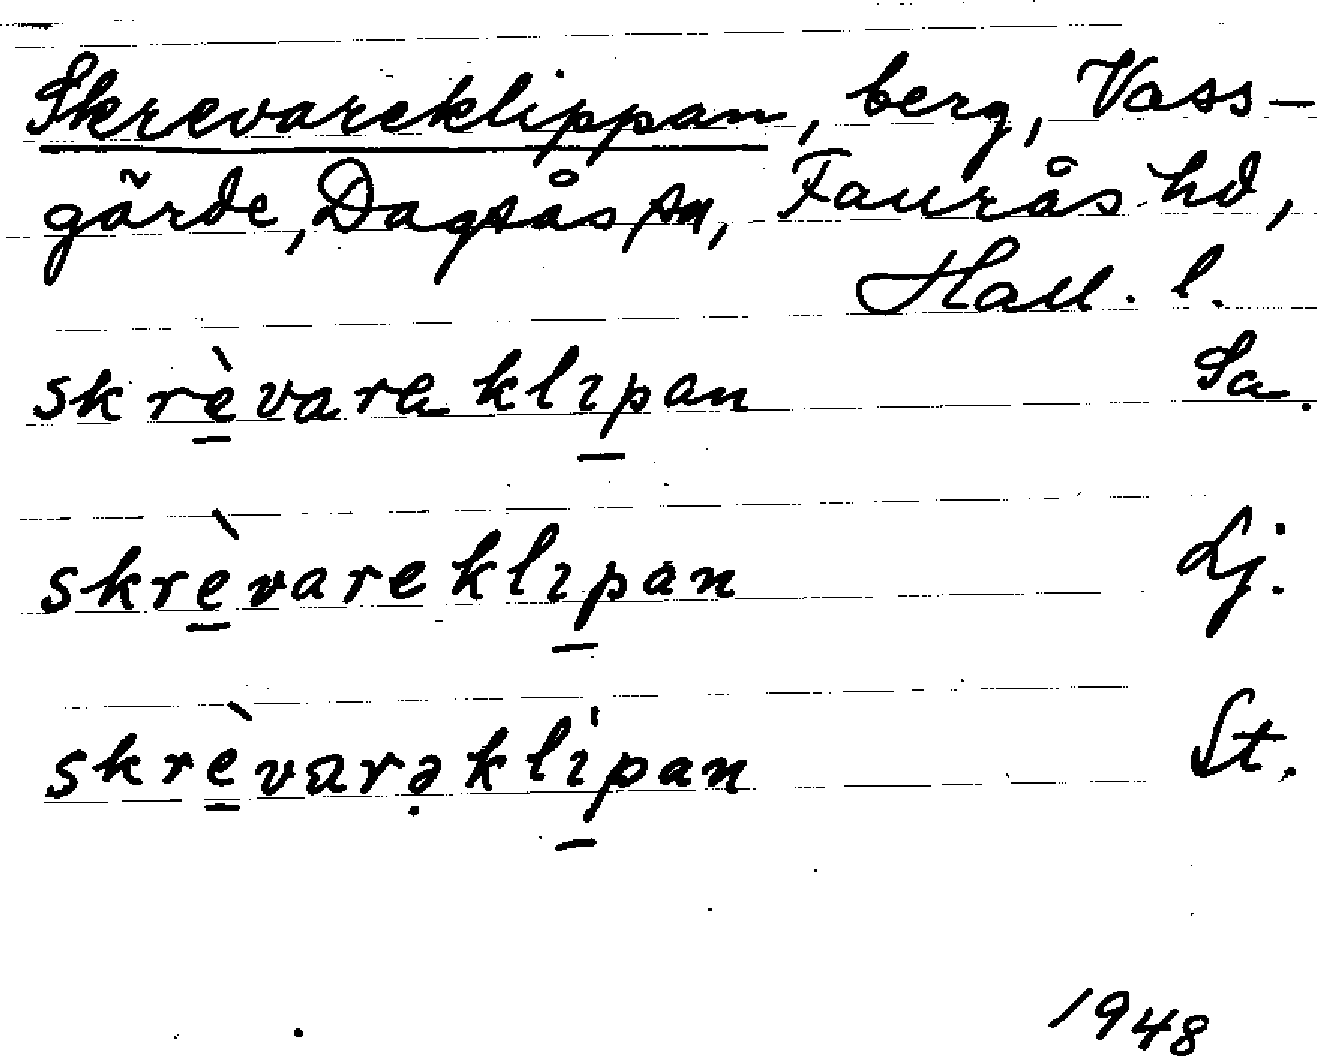 Skrevareklippan, berg, Vass-
gärde, Dagsås sn, Faurås hd,
Hall. l.
skrèvaraklıpan Sa.
skrèvareklıpan Lj.
skrèvarəklıpan St.
1948